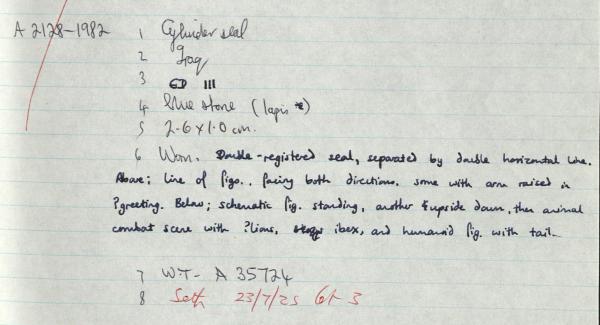 A 2128-1982 1 Cylinder seal
2 Iraq
3 ED III
4 blue stone (lapis)
5 2.6 x 1.0 cm.
6 Worn. Double-registered seal, separated by double horizontal line.
Above; line of figs.. facing both directions. some with arm raised in
?greeting. Below; schematic fig. standing, another upside down, then animal
combat scene with ?lions, ibex, and humanoid fig. with tail.
7 WT- A 35724
8 23/7/25 Lot 3